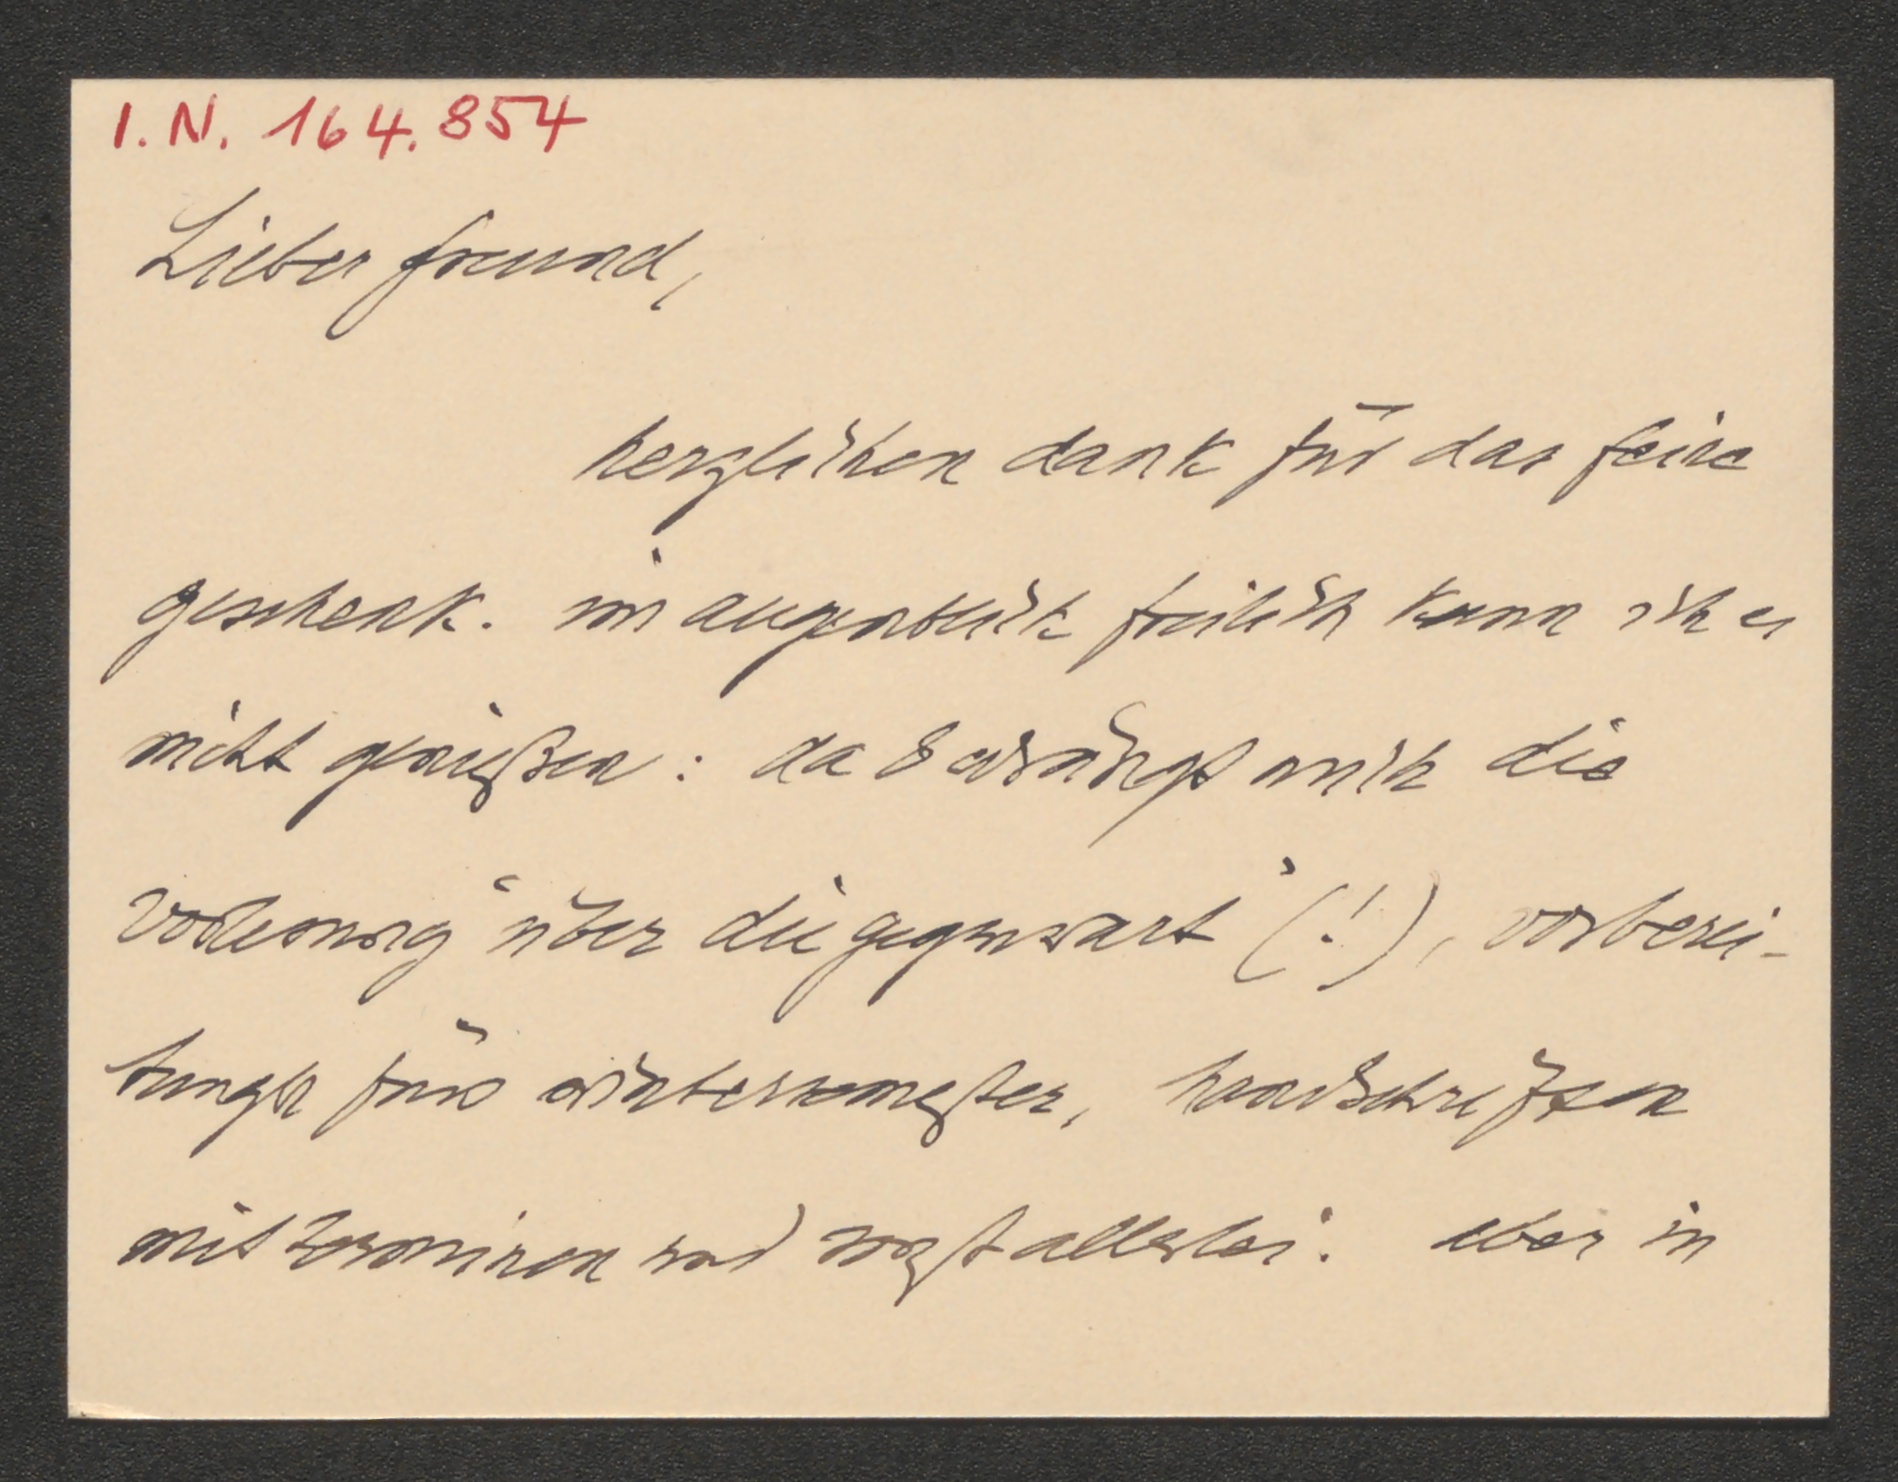 I. N. 164.854
Lieber freund,
herzlichen dank für das feine
geschenk. im augenblick freilich kann ich es
nicht genießen: da bedrängt mich die
vorlesung "über die gegenwart" (!), vorberei-
tungen fürs wintersemester, handschriften
mit terminen und sonst allerlei. aber in